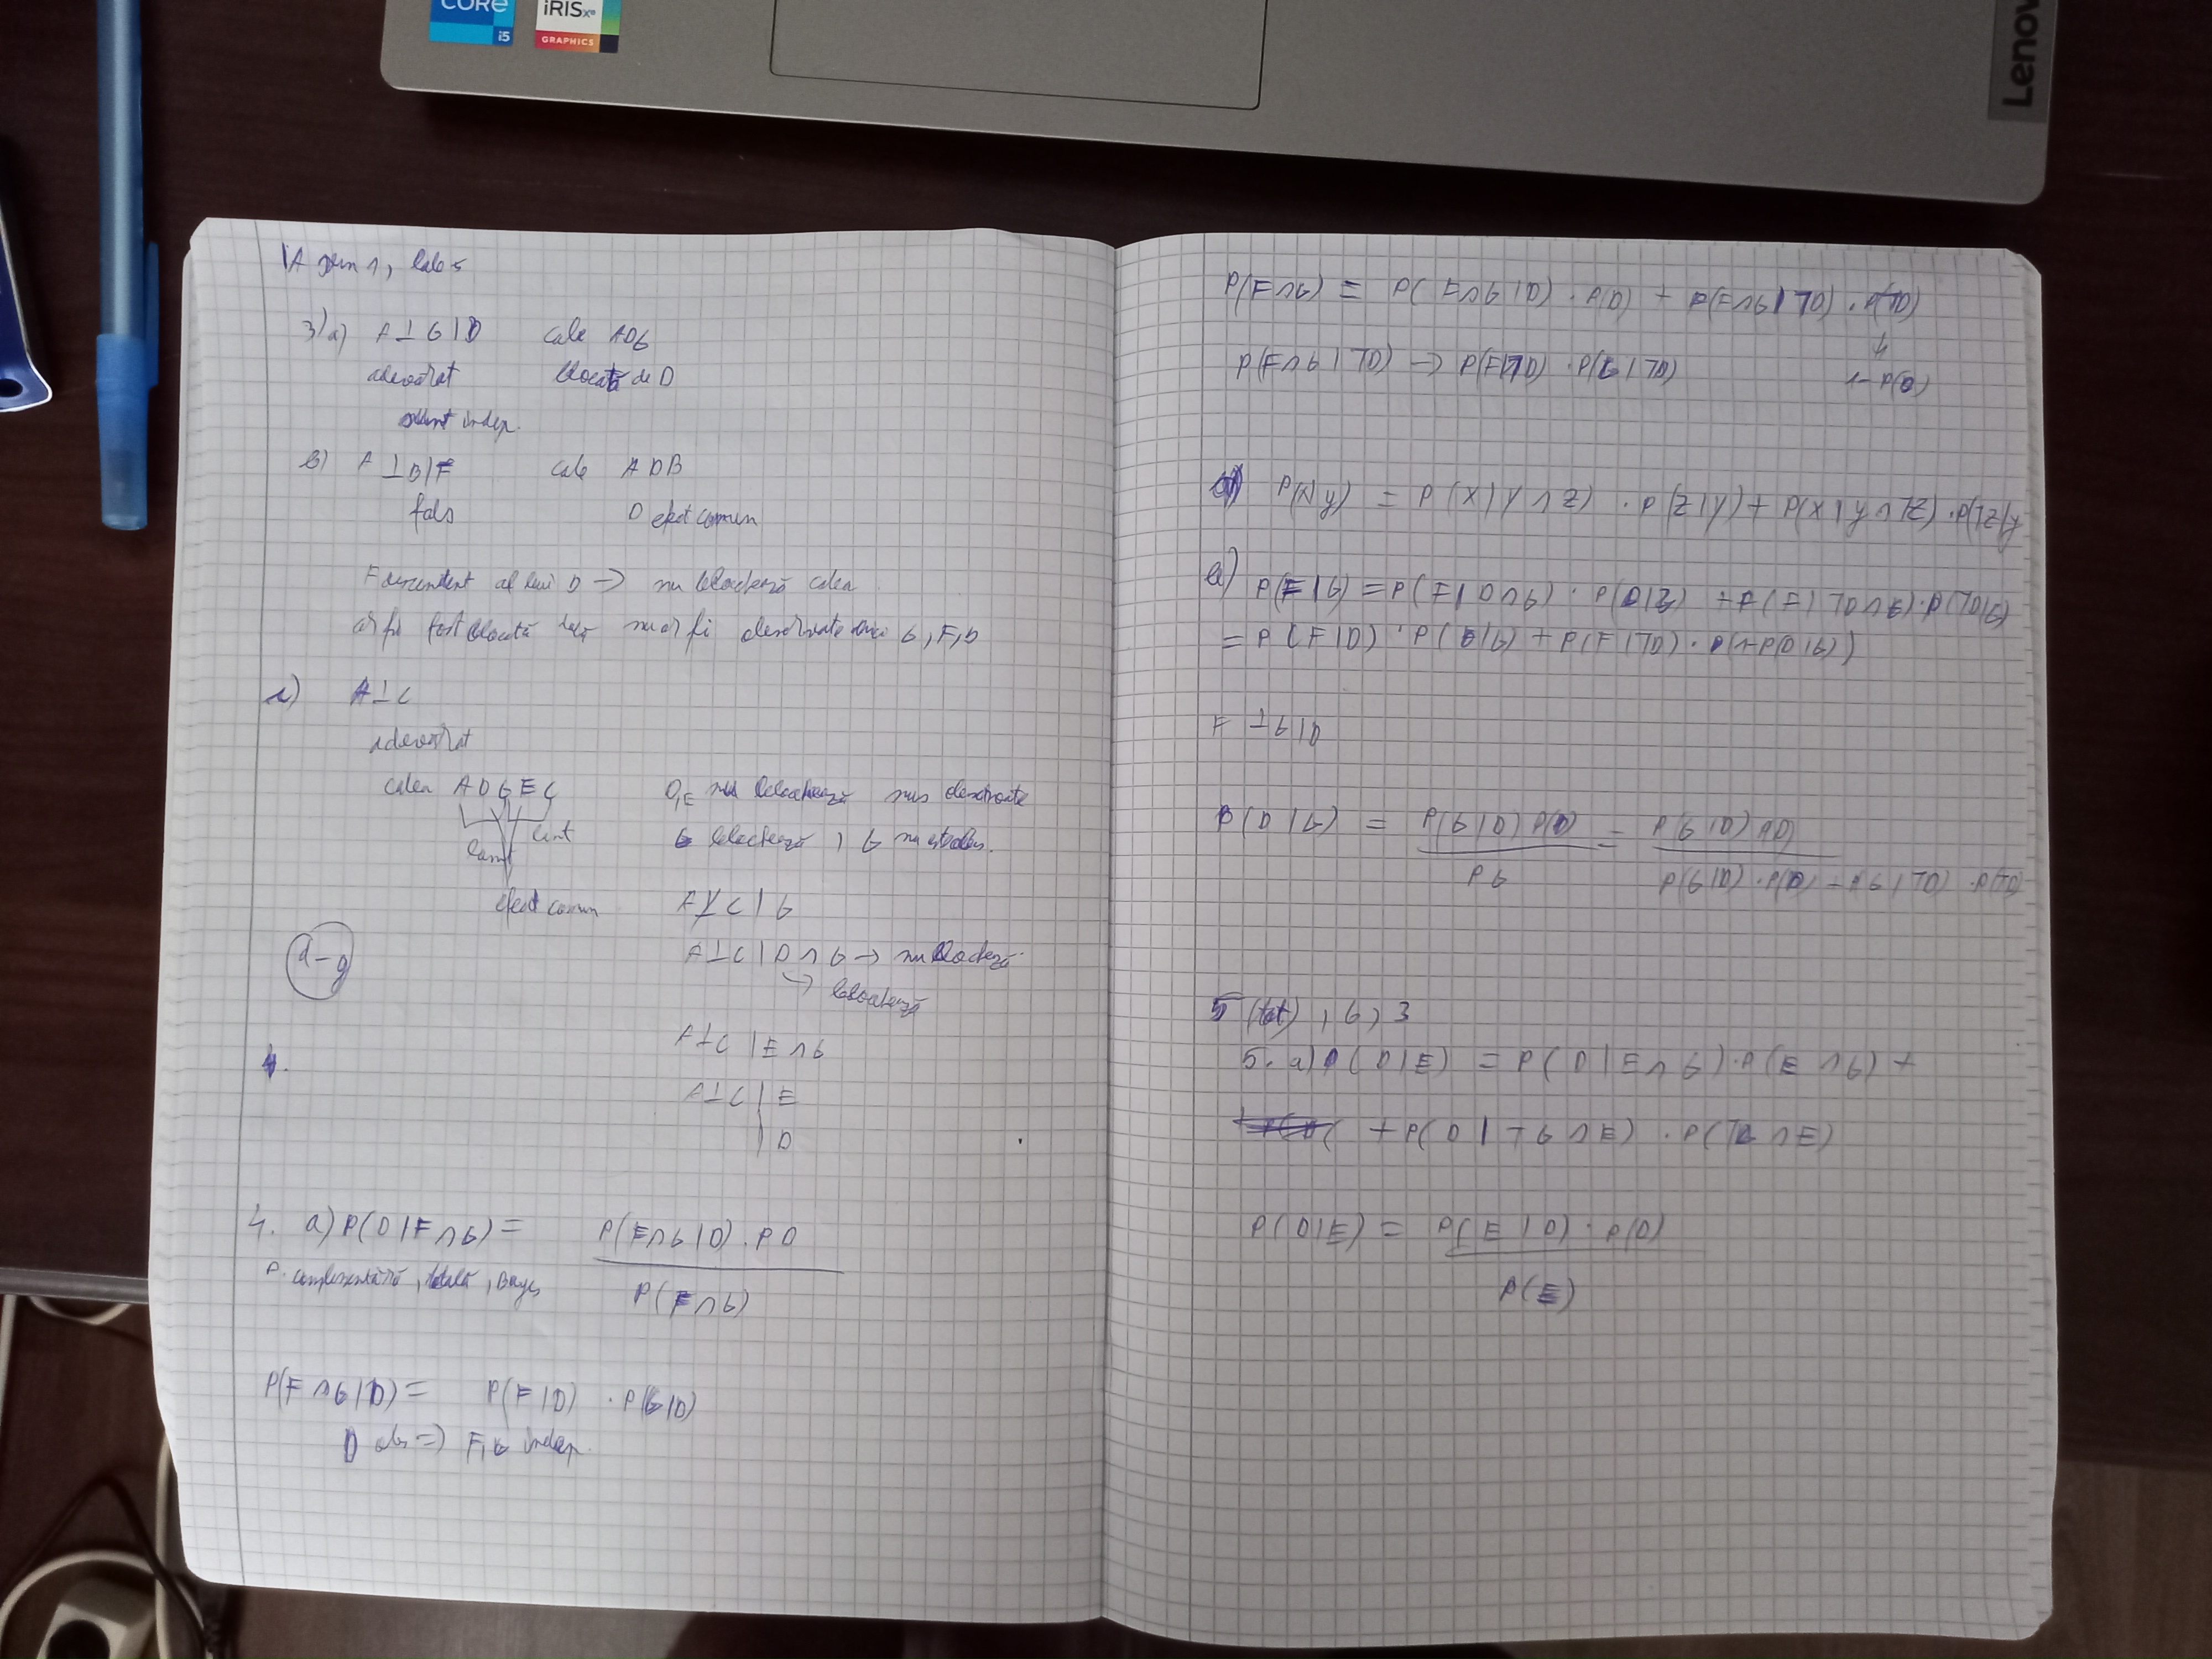 CORE
i5
iRIS xe
GRAPHICS
Lenov
IA sem 1, lab 5
3) a) A ⊥ G | D cale ADG
adevărat blocată de D
sunt indep.
b) A ⊥ B | F cale ADB
fals D efect comun
F descendent al lui D → nu blochează calea
ar fi fost blocată dacă nu ar fi observate nici G, F, D
c) A ⊥ C
adevărat
calea A D G E C D, E nu blochează nus observate
lanț lant G blochează, G nu
efect comun A ⊥̸ C | G
d-g A ⊥ C | D ∩ G → nu blochează
→ blochează
A ⊥ C | E ∩ G
4. A ⊥ C | E
| D
4. a) P(D | F ∩ G) = P(F ∩ G | D) . P D
P. complementară, totală, Bayes P(F ∩ G)
P(F ∩ G | D) = P(F | D) . P(G | D)
D obs => F, G indep.
P(F ∩ G) = P(F ∩ G | D) . P(D) + P(F ∩ G | ⅂D) . P(⅂D)
P(F ∩ G | ⅂D) → P(F | ⅂D) . P(G | ⅂D) 1 - P(D)
P(X | Y) = P(X | Y ∩ Z) . P(Z | Y) + P(X | Y ∩ ⅂Z) . P(⅂Z | Y
b) P(F | G) = P(F | D ∩ G) . P(D | G) + P(F | ⅂D ∩ G) . P(⅂D | G)
= P(F | D) . P(D | G) + P(F | ⅂D) . P(1 - P(D | G))
F ⊥ G | D
P(D | G) = P(G | D) P(D) = P(G | D) P(D)
P G P(G | D) . P(D) + P(G | ⅂D) . P(⅂D)
5 (tot), 6, 3
5. a) P(D | E) = P(D | E ∩ G) . P(E ∩ G) +
+ P(D | ⅂ G ∩ E) . P(⅂G ∩ E)
P(D | E) = P(E | D) . P(D)
P(E)